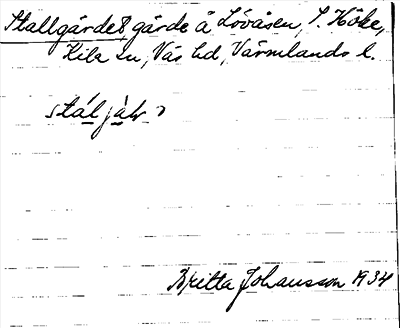 Stallgärdet gärde å Lövåsen, S. Höke,
Kila sn, Näs hd, Värmlands l.
Britta Johansson 1934